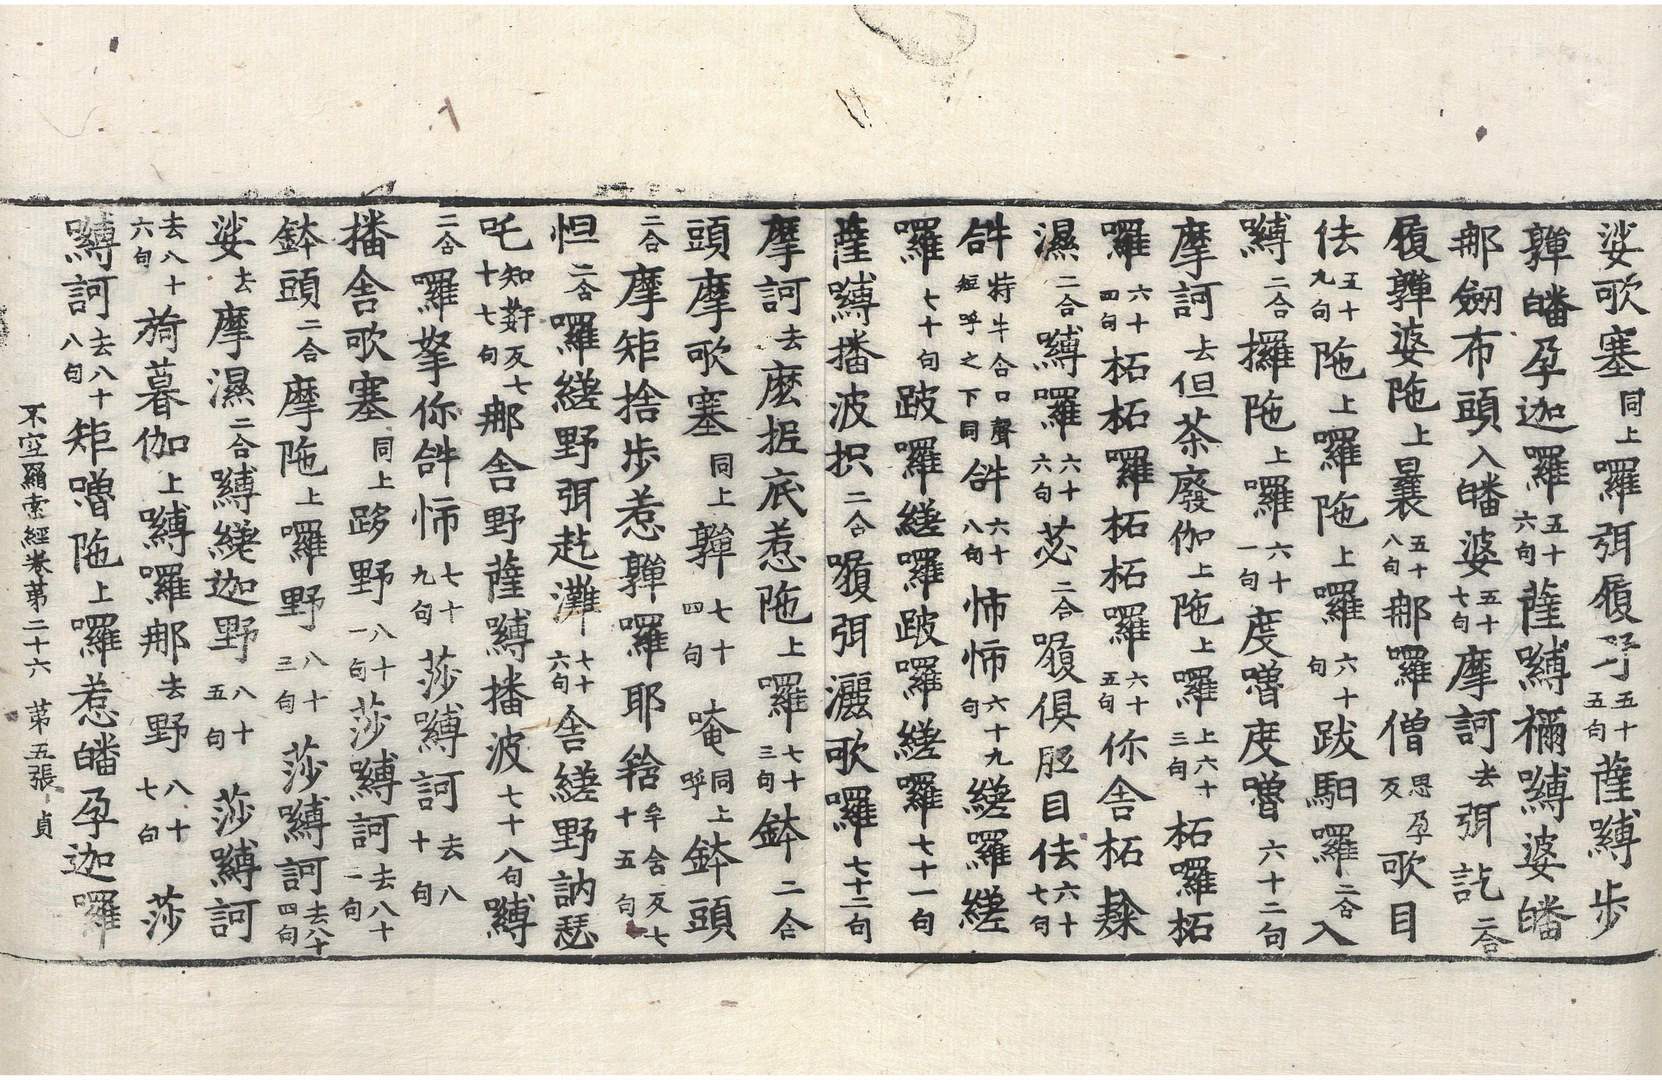 娑歌塞同上囉弭履吇五十五句薩嚩步
㲉皤孕迦囉五十六句薩嚩禰嚩婆皤
那劒布頭入皤婆五十七句摩訶去弭訖二合
履㲉婆陁上曩五十八句那囉僧思孕反歌目
佉五十九句陁上囉陁上囉六十句跋馹囉二合入
嚩二合攞陁上囉六十一句度嚕度嚕六十二句
摩訶去但荼廢伽上陁上囉上六十三句柘囉柘
囉六十四句柘柘囉柘柘囉六十五句你舍柘
濕二合嚩囉六十六句苾二合嚪俱胵目佉六十七句
𤙖特牛合口聲短呼之下同𤙖六十八句怖怖六十九句縒囉縒
囉七十句跛囉縒囉跛囉縒囉七十一句
薩嚩播波抧二合嚪弭灑歌囉七十二句
摩訶去麼抳底惹陁上囉七十三句鉢二合
頭摩歌塞同上㲉七十四句唵同上呼鉢頭
二合摩矩捨步惹㲉囉耶𦧶牟含反七十五句
怛二合囉縒野弭訖灘七十六句舍縒野訥瑟
吒知䓍反七十七句那舍野薩嚩播波七十八句嚩
二合囉拏你𤙖怖七十九句莎嚩訶去八十句
播舍歌塞同上跢野八十一句莎嚩訶去八十一句
鉢頭二合摩陁上囉野八十三句莎嚩訶去八十四句
娑去摩濕二合嚩縒迦野八十五句莎嚩訶
去八十六句旖暮伽上嚩囉那去野八十七句莎
嚩訶去八十八句矩嚕陁上囉惹皤孕迦囉
不空羂索經卷苐二十六 苐五張 貞